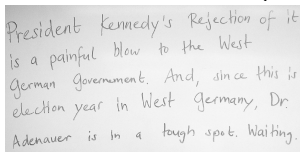 President Kennedy's Rejection of it
is a painful blow to the West
German Government. And, since this is
election year in West Germany, Dr.
Adenauer is in a tough spot. Waiting.